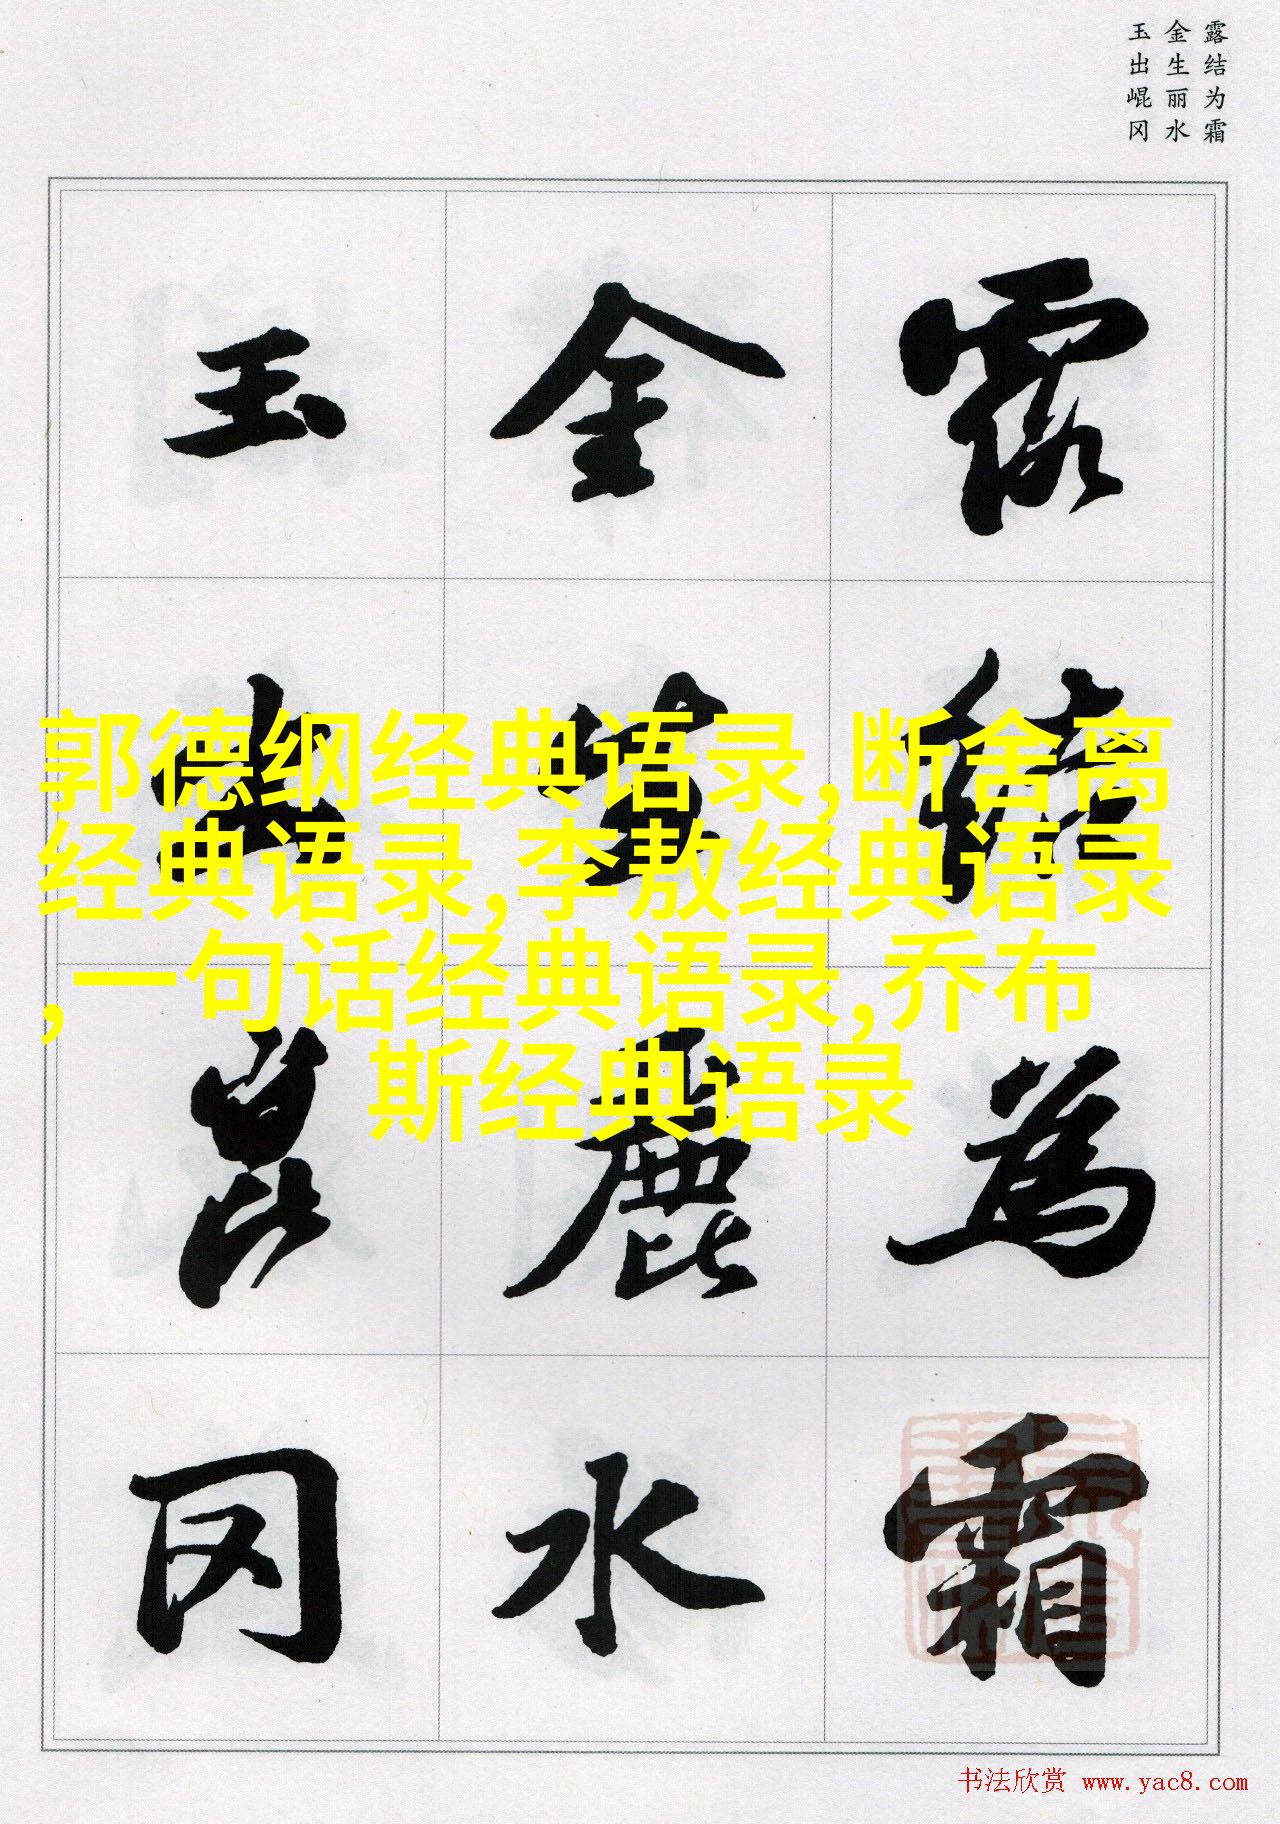 露结为霜
金生丽水
玉出崐冈
露結為霜
金生麗水
玉出崑冈
郭德纲经典语录,断舍离
经典语录,李敖经典语录
,一句话经典语录,乔布
斯经典语录
书法欣赏 www.yac8.com